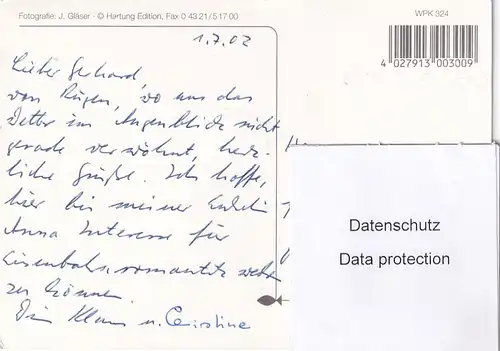 Fotografie: J. Gläser · © Hartung Edition, Fax 0 43 21/5 17 00
WPK 324
1.7.02
4 027913 003009
Lieber Gerhard,
von Rügen, wo uns das
Wetter im Augenblick nicht
gerade verwöhnt, herz-
liche Grüße. Ich hoffe,
hier bei meiner Enkelin
Anna Interesse für
Eisenbahnromantik wecken
zu können.
Dein Klaus u. Caroline
Datenschutz
Data protection